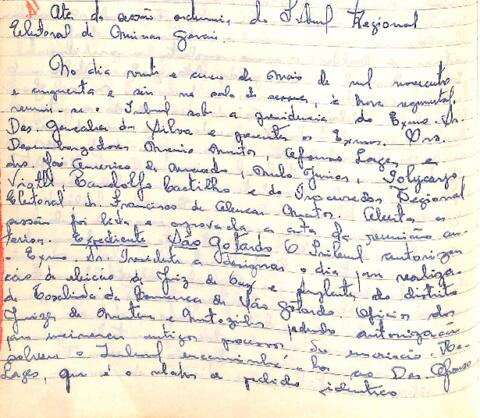 Ata da sessão ordinaria do Tribunal Regional
Eleitoral de Minas Gerais.
No dia vinte e cinco de maio de mil novecentos
e cinquenta e seis, na sala de sessões, à hora regimental
reuniu-se o Tribunal sob a presidencia do Exmo. Sr.
Des. Gonçalves da Silva e presentes os Exmos. Drs.
Desembargadores Afonso Lages, e
drs. José Americo de Macedo, Policarpo,
Viotti, Candolfo Castilho e do Procurador Regional
Eleitoral dr. Francisco de Alencar. Aberta a
sessão foi lida e aprovada a ata da reunião an-
terior. Expediente São Gotardo O Tribunal autorizou
o Exmo. Dr. Presidente a designar o dia para realiza-
ção da eleição de Juiz de Paz e suplentes do distrito
de da Comarca de São Gotardo. Oficios dos
Juizes de e pedindo autorização
para incinerar antigos processos de inscrição. Re-
solveu o Tribunal encaminhá-los ao Des. Afonso
Lages, que é o relator de pedido identico